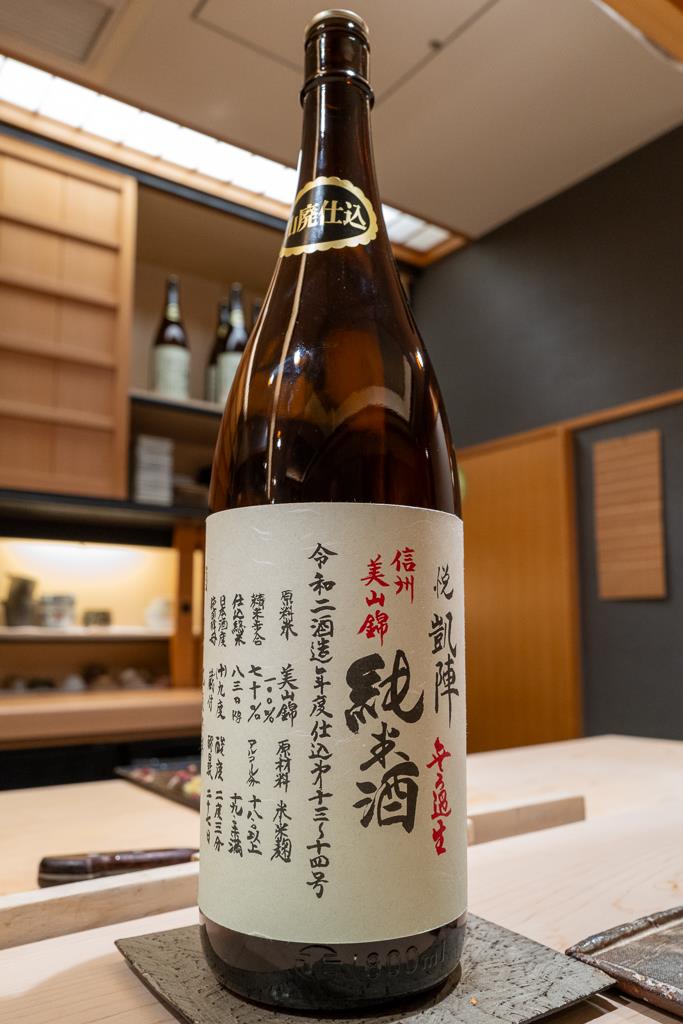 山廃仕込
悦 凱陣 無ろ過生
信州
美山錦
純米酒
令和二酒造年度仕込第十三〜十四号
原料米 美山錦一〇〇% 原材料 米米麹
精米歩合 七十% アルコール分 十八.〇以上十九.〇未満
仕込総米 八三〇kg
日本酒度 十九度 酸度 二度三分
蔵付 二十七日
1800ml